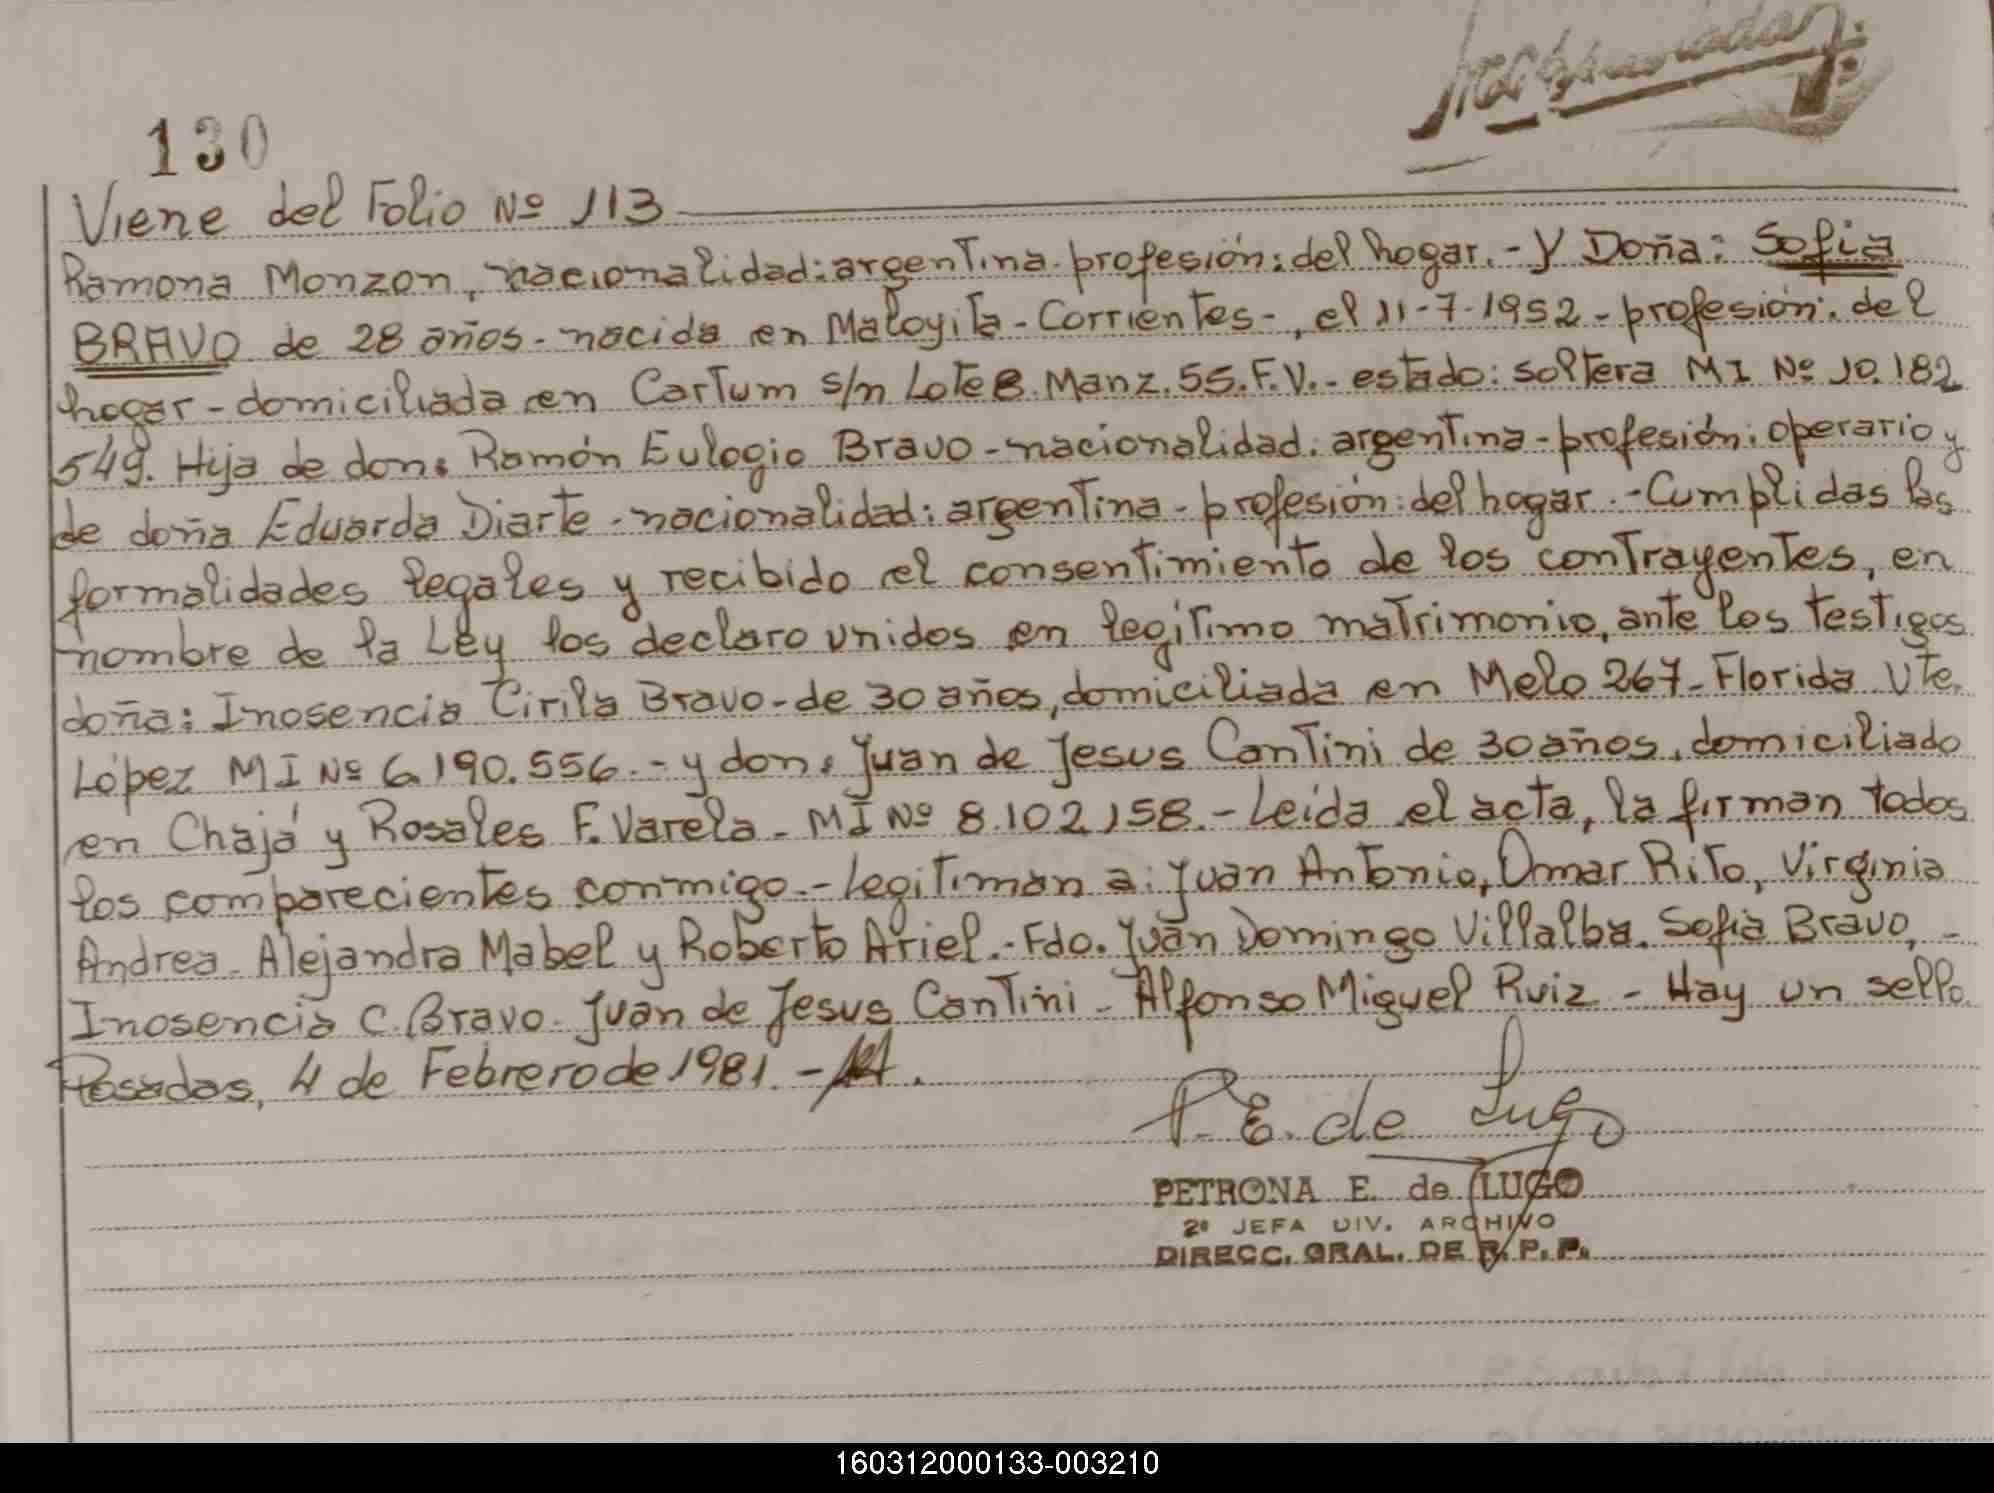 130
Viene del Folio Nº 113
Ramona Monzon, nacionalidad: argentina. profesión: del hogar. - Y Doña: Sofia
BRAVO de 28 años - nacida en Maloyita - Corrientes -, el 11-7-1952 - profesión: del
hogar - domiciliada en Cartum s/n Lote 8. Manz. 55. F.V. - estado: soltera MI Nº 10.182
549. Hija de don: Ramón Eulogio Bravo - nacionalidad: argentina - profesión: operario y
de doña Eduarda Diarte - nacionalidad: argentina - profesión: del hogar. - Cumplidas las
formalidades legales y recibido el consentimiento de los contrayentes, en
nombre de la Ley los declaro unidos en legítimo matrimonio, ante los testigos
doña: Inosencia Cirila Bravo - de 30 años, domiciliada en Melo 267 - Florida Vte.
López MI Nº 6.190.556. - y don: Juan de Jesus Cantini de 30 años, domiciliado
en Chajá y Rosales F. Varela - MI Nº 8.102.158. - Leída el acta, la firman todos
los comparecientes conmigo. - Legitiman a: Juan Antonio, Omar Rito, Virginia
Andrea - Alejandra Mabel y Roberto Ariel. - Fdo. Juan Domingo Villalba. Sofia Bravo, -
Inosencia C. Bravo - Juan de Jesus Cantini - Alfonso Miguel Ruiz - Hay un sello.
Posadas, 4 de Febrero de 1981. -
P. E. de Lugo
PETRONA E. de LUGO
2º JEFA DIV. ARCHIVO
DIRECC. GRAL. DE R. P. P.
160312000133-003210